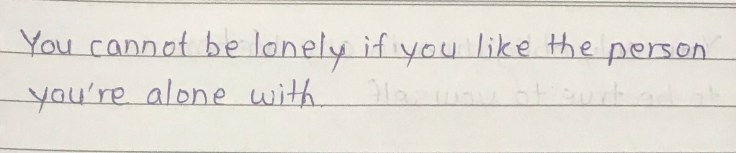 You cannot be lonely if you like the person
you're alone with.